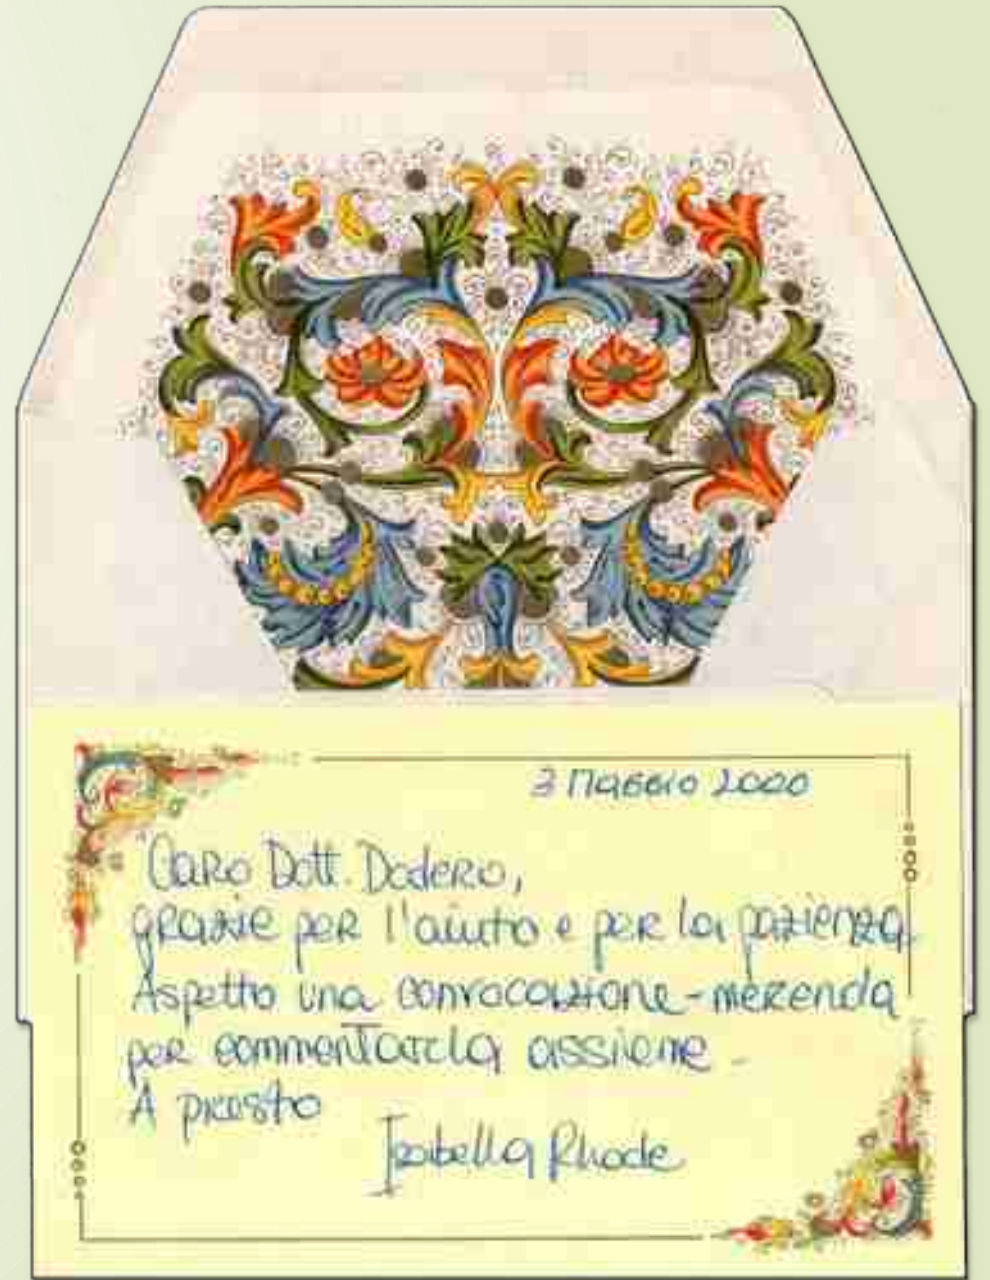 3 Maggio 2000
"Caro Dott. Dodero,
grazie per l'aiuto e per la pazienza.
Aspetto una convocazione-merenda
per commentarla assieme -
A presto
Isabella Rhode